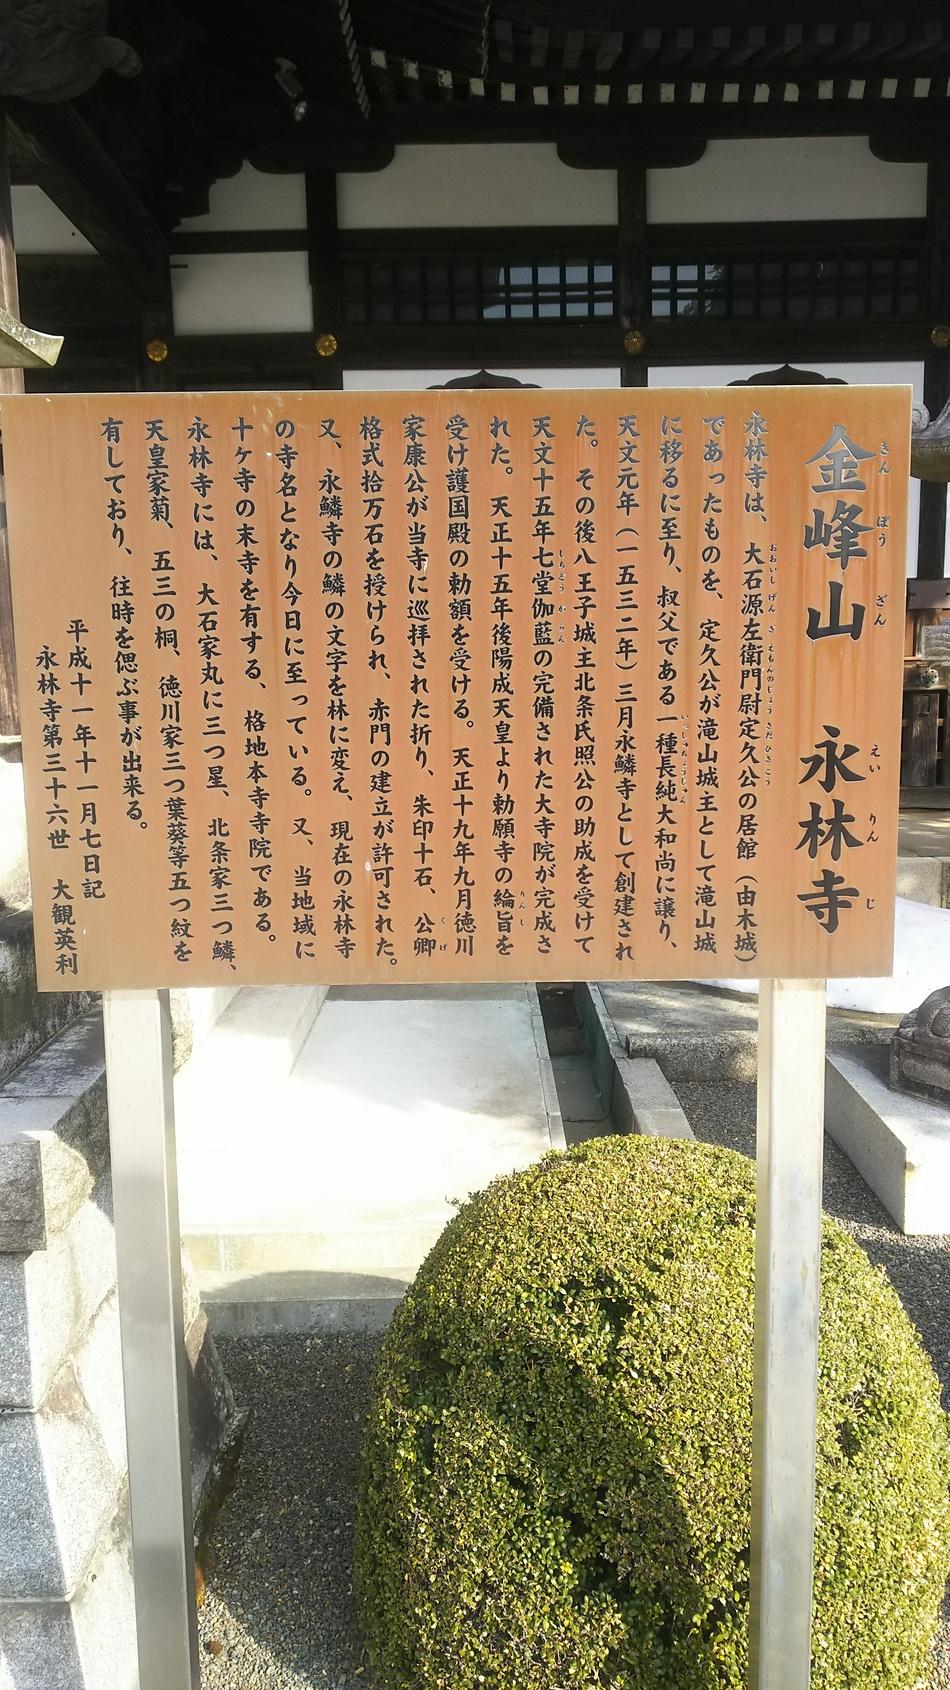 金峰山 永林寺
きん ぽう ざん えい りん じ
永林寺は、大石源左衛門尉定久公の居館（由木城）
おおいし げん ざ えもんのじょう さだ ひさこう
であったものを、定久公が滝山城主として滝山城
に移るに至り、叔父である一種長純大和尚に譲り、
いっしゅちょうじゅん
天文元年（一五三二年）三月永鱗寺として創建され
た。その後八王子城主北条氏照公の助成を受けて
天文十五年七堂伽藍の完備された大寺院が完成さ
しちどう がらん
れた。天正十五年後陽成天皇より勅願寺の綸旨を
りんし
受け護国殿の勅額を受ける。天正十九年九月徳川
家康公が当寺に巡拝された折り、朱印十石、公卿
くげ
格式拾万石を授けられ、赤門の建立が許可された。
又、永鱗寺の鱗の文字を林に変え、現在の永林寺
の寺名となり今日に至っている。又、当地域に
十ケ寺の末寺を有する、格地本寺寺院である。
永林寺には、大石家丸に三つ星、北条家三つ鱗、
天皇家菊、五三の桐、徳川家三つ葉葵等五つ紋を
有しており、往時を偲ぶ事が出来る。
平成十一年十一月七日記
永林寺第三十六世 大観英利